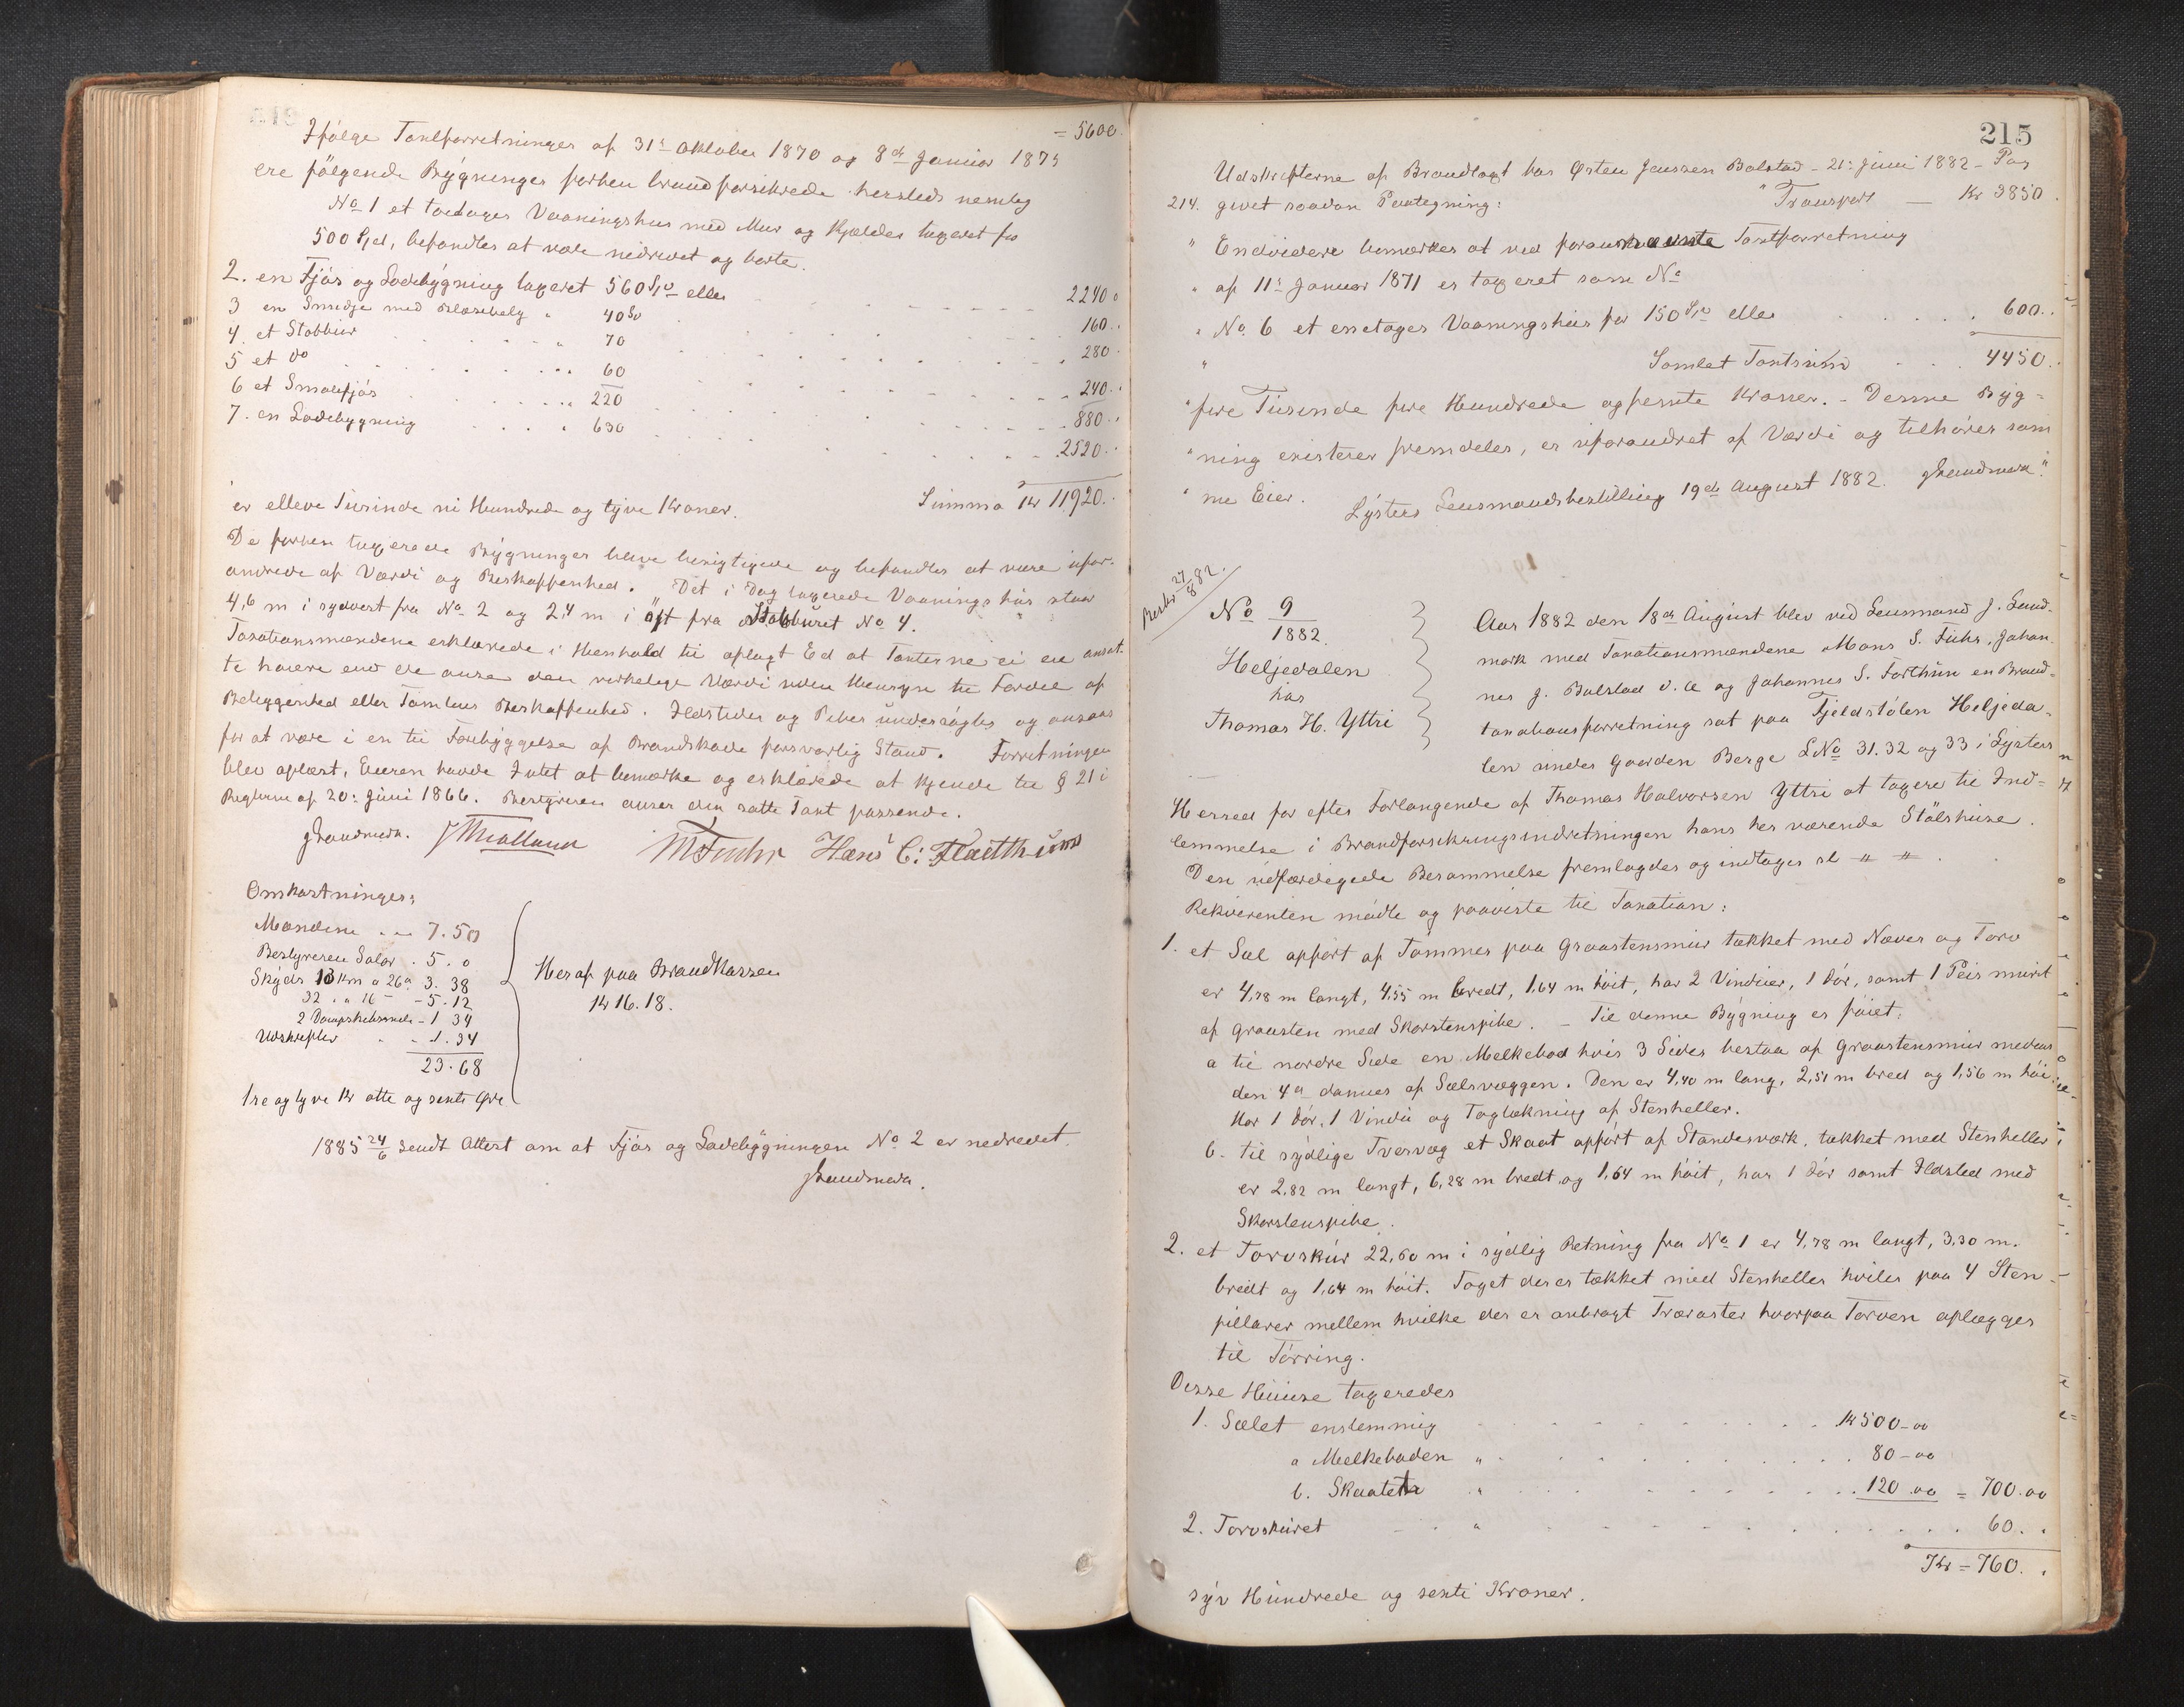 = 5600.
Ifølge Taxtforretninger af 31te Oktober 1870 og 8de Januar 1875
ere følgende Bygninger forhen brandforsikrede hersteds nemlig
No 1 et toetages Vaaningshus med Mur og Kjælder taxeret for
500 Spd, befandtes at være nedrevet og borte.
2. en Fjøs og Ladebygning taxeret 560 Spd eller 2240 "
3 en Smedje med Blæsebelg " 40 Sp 160. "
4. et Stabbur 70 280 "
5 et do 60 240. "
6 et Smalefjøs 220 880. "
7. en Ladebygning 630 2520. "
Summa Kr 11920. "
er elleve Tusinde ni Hundrede og tyve Kroner.
De forhen taxerede Bygninger bleve besigtigede og befandtes at være ufor-
andrede af Værdi og Beskaffenhed. Det i Dag taxerede Vaaningshus staar
4,6 m i sydvest fra No 2 og 2,4 m i øst fra Stabburet No 4.
Taxationsmændene erklærede i Henhold til aflagt Ed at Taxterne ei ere ansat-
te høiere end de anse den virkelige Værdi uden Hensyn til Fordel af
Beliggenhed eller Tomtens Beskaffenhed. Ildsteder og Piber undersøgtes og ansaaes
for at være i en til Forebyggelse af Brandskade forsvarlig Stand. Forretningen
blev oplæst, Eieren havde Intet at bemærke og erklærede at kjende til § 21 i
Reglerne af 20: Juni 1866. Bestyreren anser den satte Taxt passende.
JLandmark. M Fuhr Hans C: Flatthuns
Omkostninger:
Mændene 7.50
Bestyreren Salær . 5. 0
Skyds 13 Km a 26 a 3. 38
32 " a 16 - 5.12
2 Dampskibsmile - 1 34
Udskrifter - 1. 34
23.68
Heraf paa Brandkassen
Kr 16.18.
tre og tyve Kr otte og sexti Øre
1885 24/6 sendt Attest om at Fjøs og Ladebygningen No 2 er nedrevet.
JLandmark.
215
Udskrifterne af Brandtaxt hos Østen Jensen Bolstad - 21: Juni 1882 - Pag
214. givet saadan Paategning: " Transport — Kr 3850.
" Endvidere bemærkes at ved forannævnte Taxtforretning
" af 11te Januar 1871 er taxeret som No
" No 6 et enetages Vaaningshus for 150 Spd eller 600. "
" Samlet Taxtsum 4450. "
" fire Tusinde fire Hundrede og femti Kroner. - Denne Byg-
" ning existerer fremdeles, er uforandret af Værdi og tilhører sam
" me Eier. Lysters Lensmandsbestilling 19de August 1882. JLandmark".
Beskr 27/8 82.
No 9/1882
Heljedalen
hos
Thomas H. Yttri
Aar 1882 den 18de August blev ved Lensmand J. Land-
mark med Taxationsmændene Mons S. Fuhr, Johan-
nes J. Bolstad d. æ og Johannes S. Forthun en Brand-
taxationsforretning sat paa Fjeldstølen Heljeda-
len under Gaarden Berge LNo 31. 32 og 33 i Lysters
Herred for efter Forlangende af Thomas Halvorsen Yttri at taxere til Ind-
lemmelse i Brandforsikringsindretningen hans her værende Stølshuse.
Den udfærdigede Berammelse fremlagdes og indtages sl " "
Rekvirenten mødte og paaviste til Taxation:
1. et Sæl opført af Tømmer paa Graastensmur tækket med Næver og Torv
er 4,78 m langt, 4,55 m bredt, 1,64 m høit, har 2 Vinduer, 1 Dør, samt 1 Peis muret
af Graasten med Skorstenspibe. - Til denne Bygning er føiet:
a til nordre Side en Melkebod hvis 3 Sider bestaa af Graastensmur medens
den 4de dannes af Sælsvæggen. Den er 4,40 m lang, 2,51 m bred og 1,56 m høi.
Har 1 Dør, 1 Vindu og Taglækning af Stenheller.
b. til sydlige Tvervæg et Skaat opført af Standesværk, tækket med Stenheller
er 2,82 m langt, 6,28 m bredt og 1,64 m høit, har 1 Dør samt Ildsted med
Skorstenspibe.
2. et Torvskur 22,60 m i sydlig Retning fra No 1 er 4,78 m langt, 3,30 m.
bredt og 1,64 m høit. Taget der er tækket med Stenheller hviler paa 4 Sten-
pillarer mellem hvilke der er anbragt Trærøster hvorpaa Torven oplægges
til Tørring.
Disse Huuse taxeredes
1. Sælet enstemmig Kr 500 - 00
a Melkeboden " 80 - 00
b. Skaatet " 120 .00 = 700.00
2. Torvskuret " 60. "
Kr = 760. "
syv Hundrede og sexti Kroner.